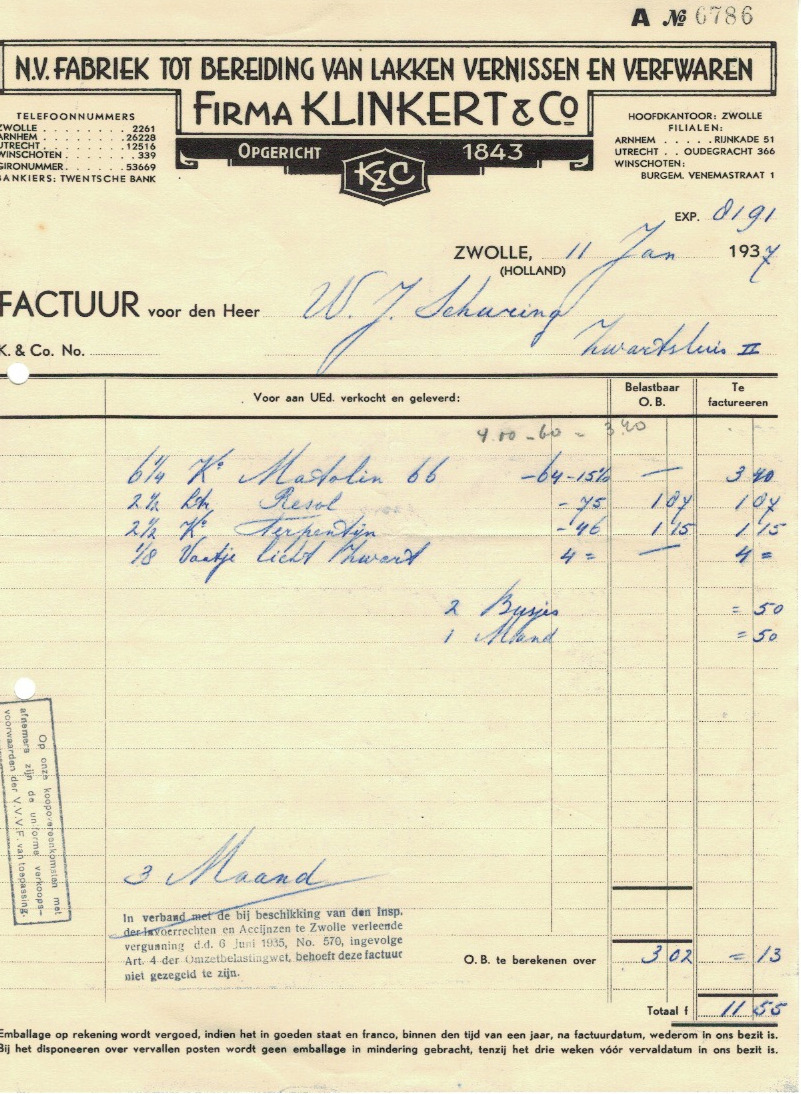 A № 6786
N.V. FABRIEK TOT BEREIDING VAN LAKKEN VERNISSEN EN VERFWAREN
FIRMA KLINKERT & CO
OPGERICHT 1843
KZC
TELEFOONNUMMERS
ZWOLLE . . . . . . . . 2261
ARNHEM . . . . . . . 26228
UTRECHT . . . . . . . 12516
WINSCHOTEN . . . . . . 339
GIRONUMMER . . . . . 53669
BANKIERS: TWENTSCHE BANK
HOOFDKANTOOR: ZWOLLE
FILIALEN:
ARNHEM . . . . . RIJNKADE 51
UTRECHT . . OUDEGRACHT 366
WINSCHOTEN:
BURGEM. VENEMASTRAAT 1
EXP. 8191
ZWOLLE, 11 Jan 1937
(HOLLAND)
FACTUUR voor den Heer W. J. Schuring
Zwartsluis II
K. & Co. No.
Voor aan UEd. verkocht en geleverd: Belastbaar O.B. Te factureeren
4.00 - 60 = 3.40
6 1/4 Ko Matolin 66 -64-15% — 3 40
2 1/2 Ltr Resol -75 1 87 1 87
2 1/2 Ko Terpentijn -46 1 15 1 15
1/8 Vaatje licht Zwart 4 = — 4 =
2 Busjes = 50
1 Mand = 50
Op onze koopovereenkomsten met
afnemers zijn de uniforme verkoops-
voorwaarden der V.V.V.F. van toepassing.
3 Maand
In verband met de bij beschikking van den Insp.
der Invoerrechten en Accijnzen te Zwolle verleende
vergunning d.d. 6 Juni 1935, No. 570, ingevolge
Art. 4 der Omzetbelastingwet, behoeft deze factuur
niet gezegeld te zijn.
O.B. te berekenen over 3 02 = 13
Totaal f 11 55
Emballage op rekening wordt vergoed, indien het in goeden staat en franco, binnen den tijd van een jaar, na factuurdatum, wederom in ons bezit is.
Bij het disponeeren over vervallen posten wordt geen emballage in mindering gebracht, tenzij het drie weken vóór vervaldatum in ons bezit is.